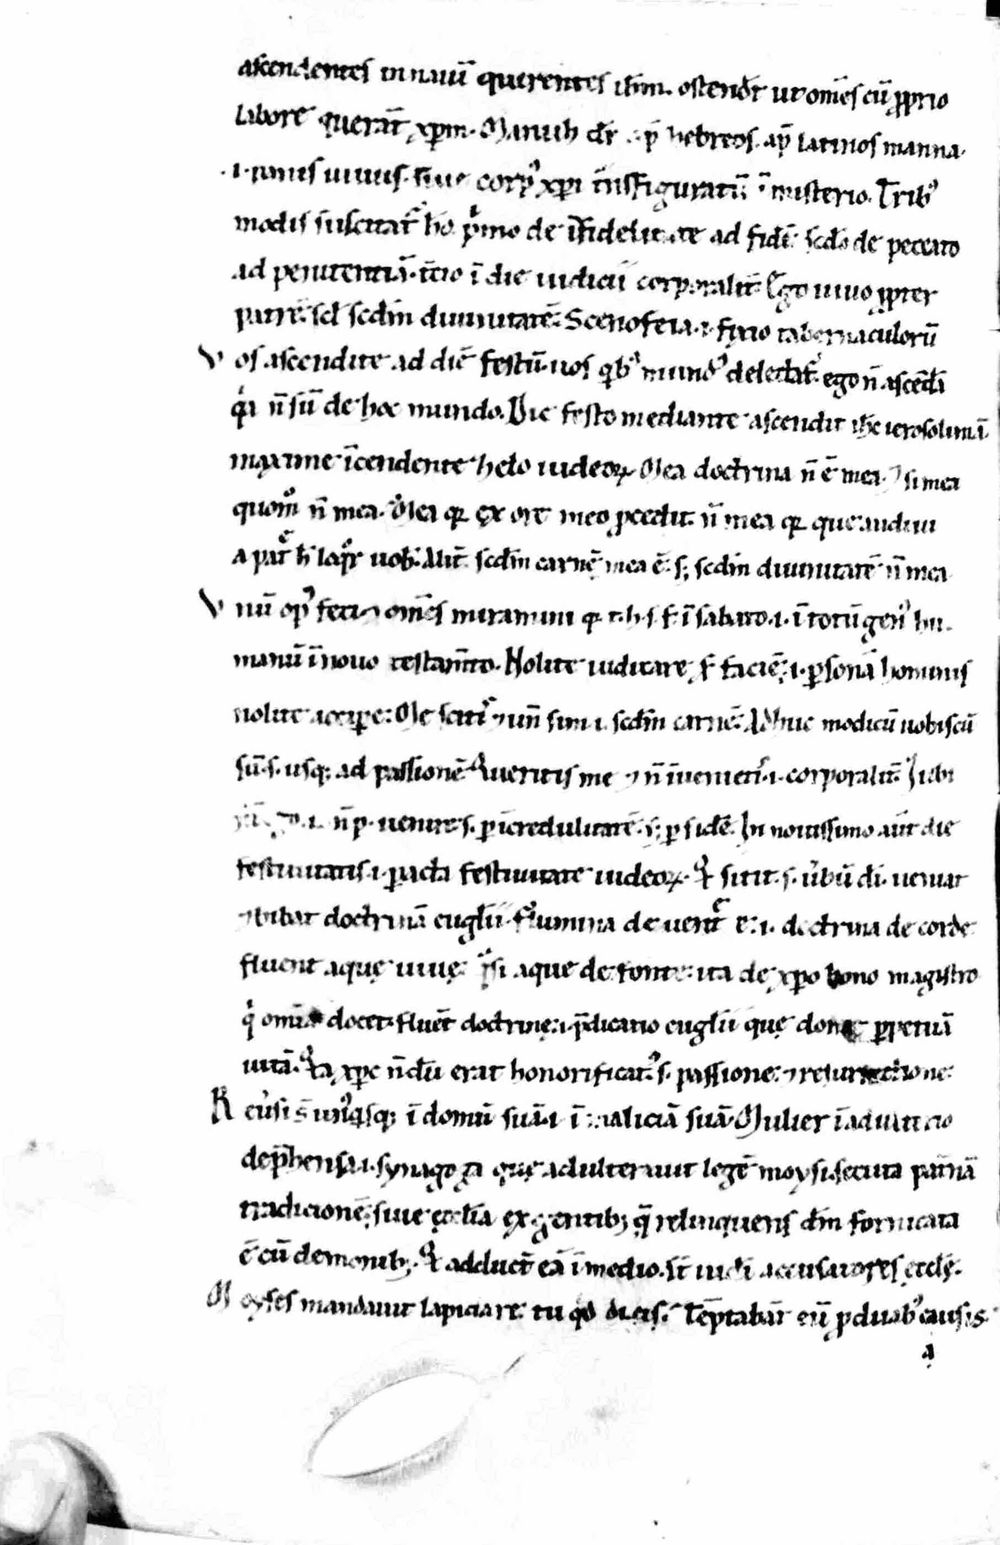 ascendentes in nauī querentes ihm. ostendit ut om̄es cū ꝓprio
labore querat̄ xpm. Manuh dr̄ ap̄ hebreos. ap̄ latinos manna.
.i. panis uiuus. siue corpꝰ xpi t̄nsfiguratū ī misterio. Tribꝰ
modis suscitat̄ ho. p̄mo de īfidelitate ad fidē. scd̄o de peccato
ad penitentiā. t̄cio ī die iudicii corporalit̄. Ego uiuo ꝓpter
patrē. scl̄ scd̄m diuinitatē. Scenofeia .i. fixio tabernaculorū
Vos ascendite ad diē festū. uos qͥbꝰ mundꝰ delectat̄. ego n̄ ascēdi
qͥa n̄ sū de hoc mundo. Die festo mediante ascendit ihc ierosolimā
maxime īcendente helo iudeoꝝ Mea doctrina n̄ ē mea. ⁊ si mea
quom̊ n̄ mea. Mea qꝛ ex ore meo ꝓcedit. n̄ mea qꝛ que audiui
a pat̄ h̄ loqͦr uob̄. Alit̄ scd̄m carnē mea ē. sꝫ scd̄m diuinitatē n̄ mea
Vnū opꝰ feci ⁊ om̄es miramini qꝛ ī sabato .i. ī totū genꝰ hu-
manū ī nouo testam̄to. Nolite iudicare faciē .i. ꝑsonā hominis
nolite accipe. Me scitis ⁊ un̄ sim .i. scd̄m carnē. Adhuc modicū uobiscū
sū .s. usqꝫ ad passionē Queritis me ⁊ n̄ īuenietis .i. corporalit̄. ubi
n̄ p̄. uenire .s. ꝑ īcredulitatē. sꝫ ꝑ fidē. In nouissimo aūt die
festiuitatis .i. ꝑacta festiuitate iudeoꝝ. Qͥ sitit .s. ūbū di. ueniat
⁊ bibat doctrinā euglii. Flumina de uent̄ eꝰ .i. doctrina de corde
fluent aquę uiuę. sͥ aque de fonte. ita de xpo bono magistro
qͥ omīa docet. fluēt doctrinę .i. p̄dicatio euglii quę donat ꝑpetuā
uitā. Qͥa xpc n̄dū erat honorificatꝰ .s. passione ⁊ resurrectione.
Reūsi s̄ unꝰqͥsqꝫ ī domū suā .i. ī maliciā suā. Mulier ī adulterio
dep̄hensa .i. synagoga quę adulterauit legē moysi. secuta pat̄nā
tradicionē. siue eccl̄ia ex gentibꝫ q̄ relinquens dm̄ fornicata
ē cū demonibꝫ. Et adduct̄ eā ī medio. st̄ iudi accusatores eccl̄ę.
Moyses mandauit lapidare. tu qͥd dicis. Tēptabāt eū ꝓ duabꝰ causis.
a